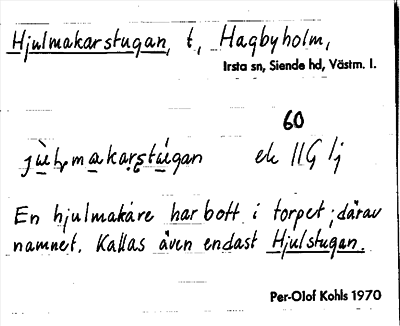 Hjulmakarstugan, t, Hagbyholm,
Irsta sn, Siende hd, Västm. l.
60
ek 11G 1j
En hjulmakare har bott i torpet; därav
namnet. Kallas även endast Hjulstugan.
Per-Olof Kohls 1970